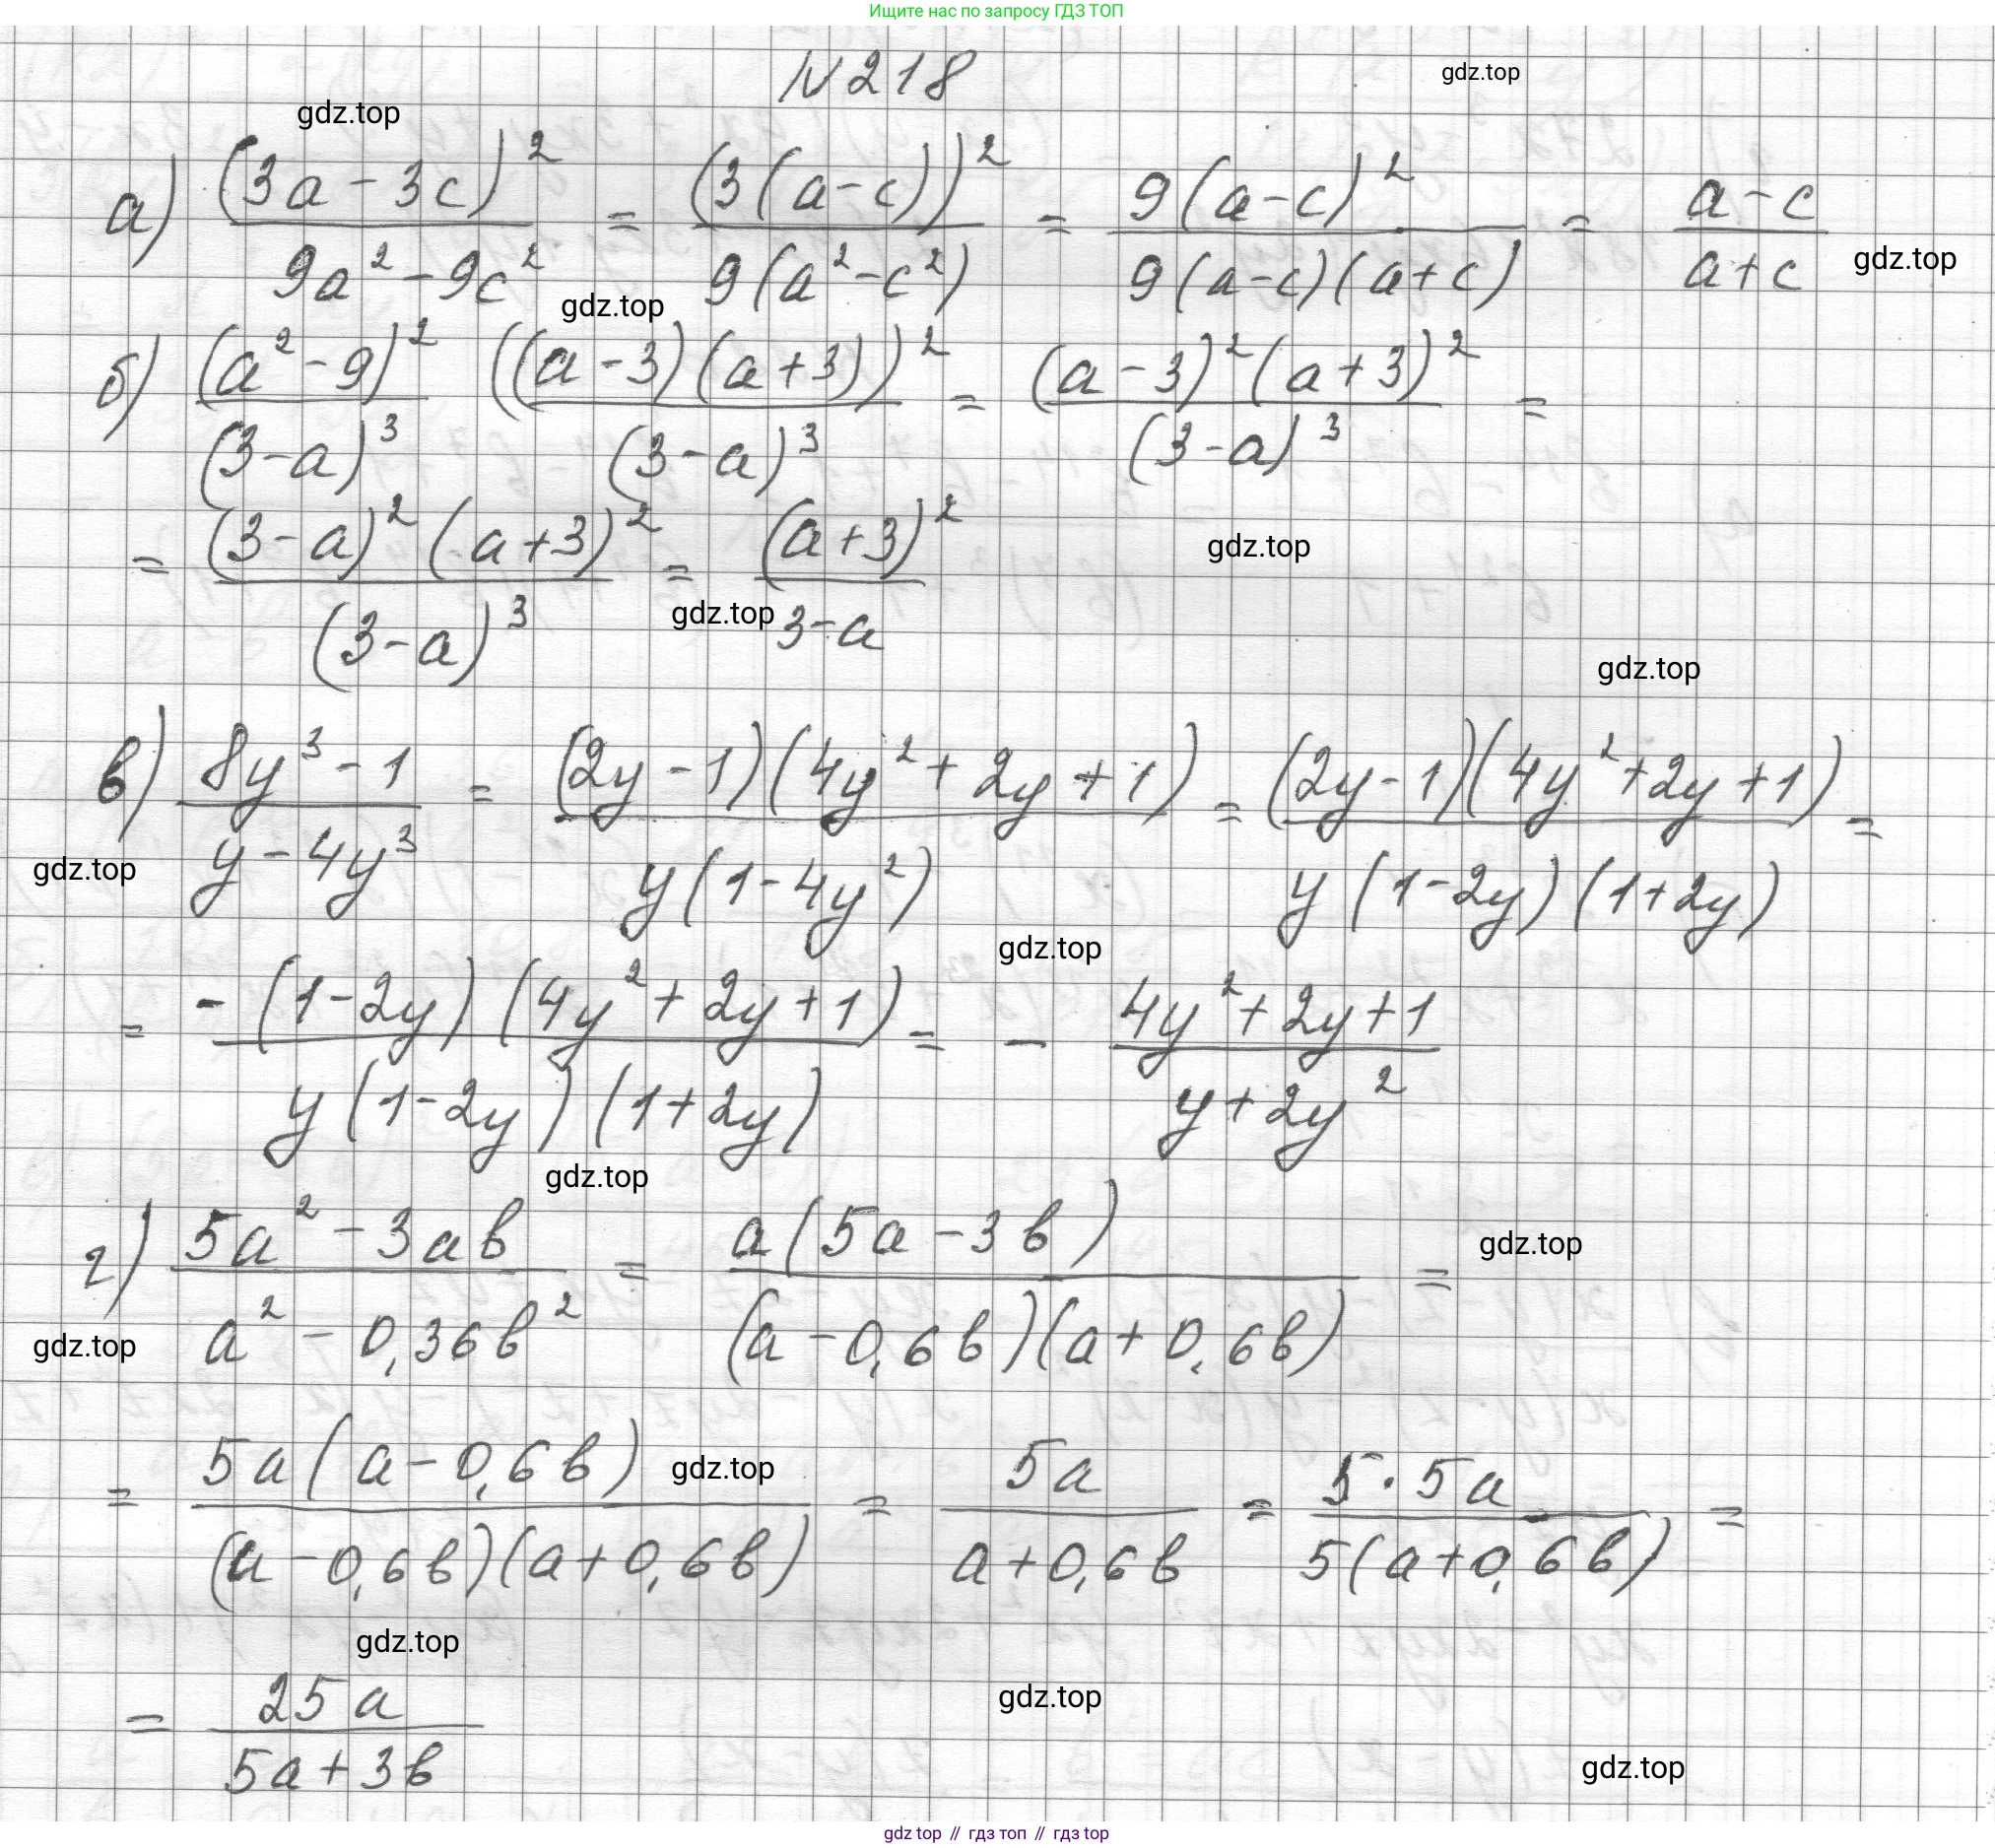 Ищите нас по запросу ГДЗ ТОП
N218
gdz.top
gdz.top
а) (3a-3c)²/(9a²-9c²) = (3(a-c))²/(9(a²-c²)) = 9(a-c)²/(9(a-c)(a+c)) = (a-c)/(a+c)
gdz.top
gdz.top
б) (a²-9)²/(3-a)³ ((a-3)(a+3))²/(3-a)³ = (a-3)²(a+3)²/(3-a)³ =
= (3-a)²(a+3)²/(3-a)³ = (a+3)²/(3-a)
gdz.top
gdz.top
gdz.top
в) (8y³-1)/(y-4y³) = (2y-1)(4y²+2y+1)/(y(1-4y²)) = (2y-1)(4y²+2y+1)/(y(1-2y)(1+2y)) =
gdz.top
gdz.top
= -(1-2y)(4y²+2y+1)/(y(1-2y)(1+2y)) = - (4y²+2y+1)/(y+2y²)
gdz.top
г) (5a²-3ab)/(a²-0,36b²) = a(5a-3b)/((a-0,6b)(a+0,6b)) =
gdz.top
gdz.top
= 5a(a-0,6b)/((a-0,6b)(a+0,6b)) = 5a/(a+0,6b) = 5·5a/(5(a+0,6b)) =
gdz.top
gdz.top
= 25a/(5a+3b)
gdz.top
gdz.top
gdz top // гдз топ // гдз top